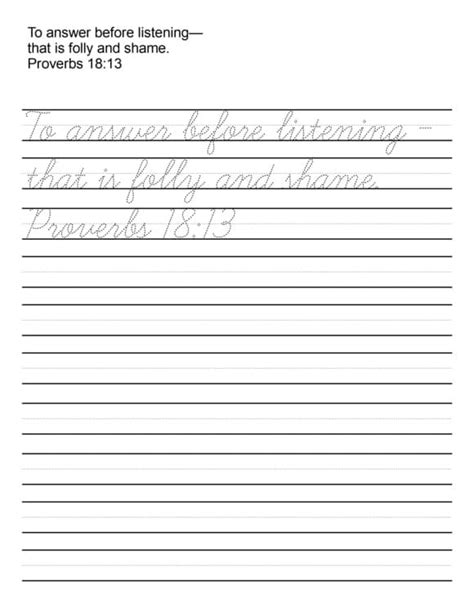 To answer before listening—
that is folly and shame.
Proverbs 18:13
To answer before listening -
that is folly and shame.
Proverbs 18:13